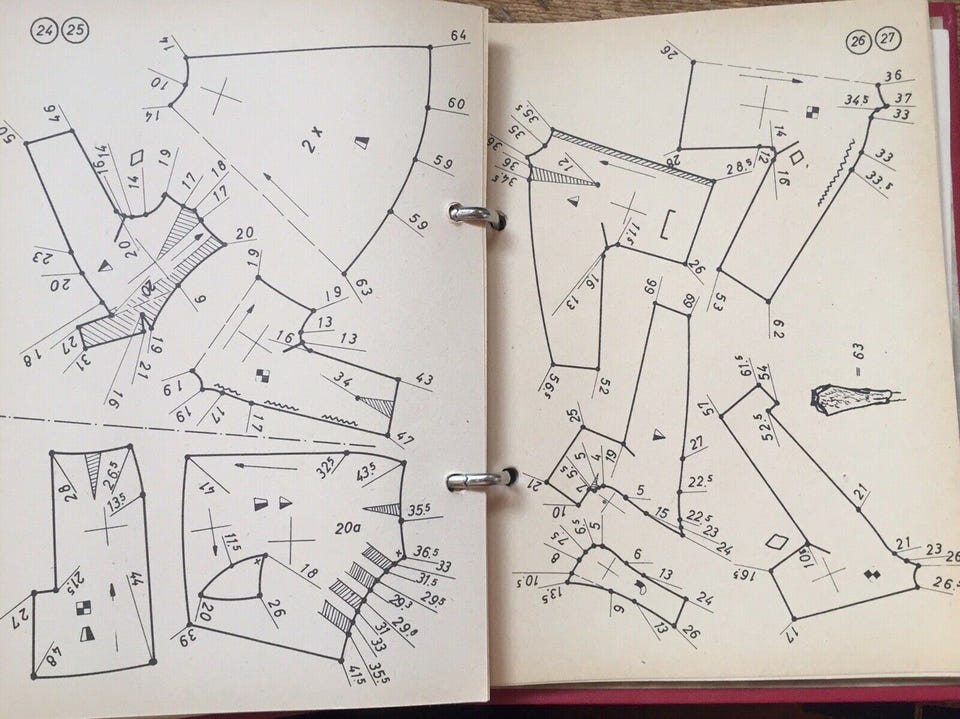 24 25
14
64
10
14
60
2 x
59
59
63
46
50
16.5
14
19
17
18
17
20
20
23
20
20
9
18
27
31
16
21
19
19
19
13
16
13
34
43
19
19
17
17
47
28
26.5
13.5
21.5
44
27
48
41
32.5
43.5
35.5
20a
11.5
18
36.5
33
31.5
29.5
29.3
29.8
31
33
35.5
41.5
20
26
39
26 27
26
36
34.5
37
33
14
12
16
28.5
33
33.5
26
53
62
35.5
35
36
36
34.5
12
11.5
26
16
13
56.5
52
66
69
= 63
61.5
54
57
52.5
25
19
5
4
5.5
7
21
10
27
22.5
5
15
22.5
23
24
6.5
5
7.5
8
10.5
13.5
6
13
24
6
13
26
21
21
23
26
26.5
16.5
10.5
17